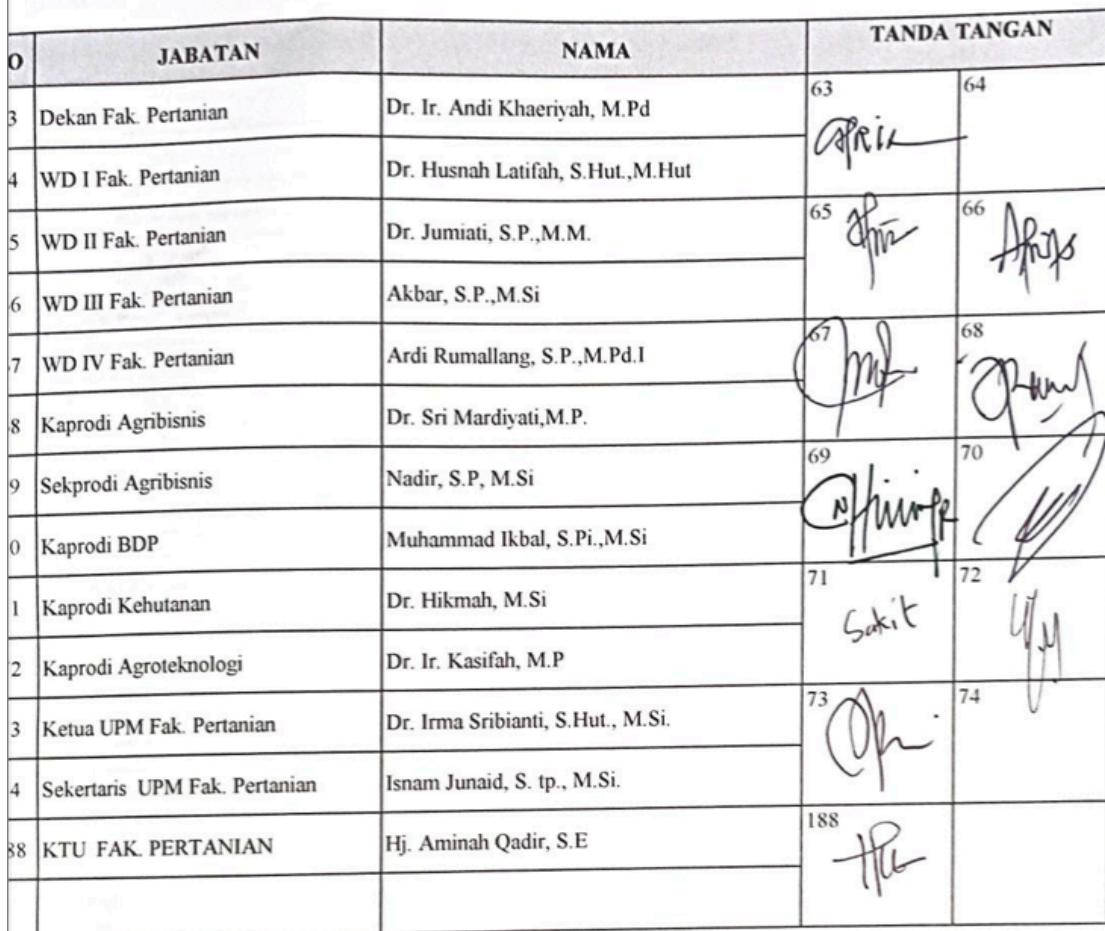 O JABATAN NAMA TANDA TANGAN
3 Dekan Fak. Pertanian Dr. Ir. Andi Khaeriyah, M.Pd 63 64
4 WD I Fak. Pertanian Dr. Husnah Latifah, S.Hut.,M.Hut
5 WD II Fak. Pertanian Dr. Jumiati, S.P.,M.M. 65 66
6 WD III Fak. Pertanian Akbar, S.P.,M.Si
7 WD IV Fak. Pertanian Ardi Rumallang, S.P.,M.Pd.I 67 68
8 Kaprodi Agribisnis Dr. Sri Mardiyati,M.P.
9 Sekprodi Agribisnis Nadir, S.P, M.Si 69 70
0 Kaprodi BDP Muhammad Ikbal, S.Pi.,M.Si
1 Kaprodi Kehutanan Dr. Hikmah, M.Si 71 Sakit 72
2 Kaprodi Agroteknologi Dr. Ir. Kasifah, M.P
3 Ketua UPM Fak. Pertanian Dr. Irma Sribianti, S.Hut., M.Si. 73 74
4 Sekertaris UPM Fak. Pertanian Isnam Junaid, S. tp., M.Si.
88 KTU FAK. PERTANIAN Hj. Aminah Qadir, S.E 188